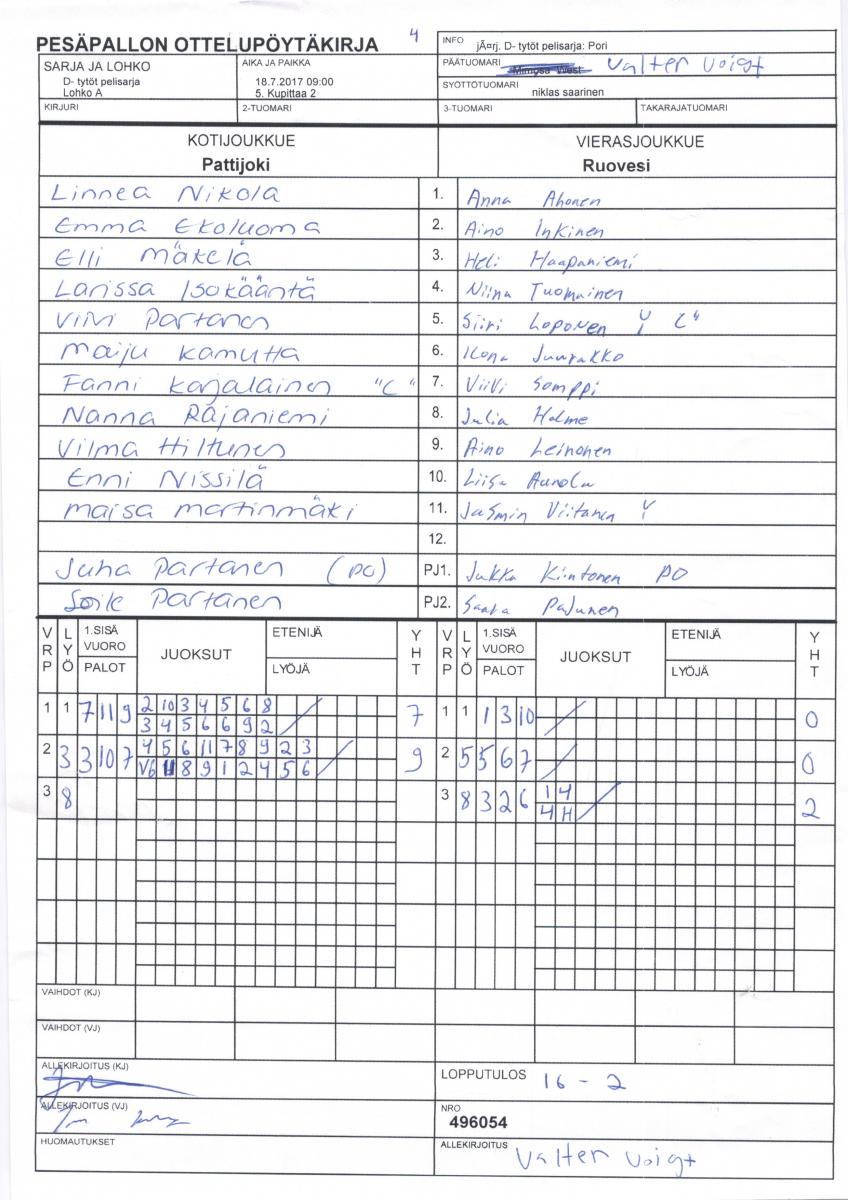 4
PESÄPALLON OTTELUPÖYTÄKIRJA
INFO jÃ¤rj. D- tytöt pelisarja: Pori
SARJA JA LOHKO
D- tytöt pelisarja
Lohko A
AIKA JA PAIKKA
18.7.2017 09:00
5. Kupittaa 2
PÄÄTUOMARI Mimosa West Valter Voigt
SYÖTTÖTUOMARI niklas saarinen
KIRJURI 2-TUOMARI 3-TUOMARI TAKARAJATUOMARI
KOTIJOUKKUE VIERASJOUKKUE
Pattijoki Ruovesi
Linnea Nikola 1. Anna Ahonen
Emma Ekoluoma 2. Aino Inkinen
Elli Mäkelä 3. Heli Haapaniemi
Larissa Isokääntä 4. Niina Tuomainen
Viivi Partanen 5. Siiri Loponen Y C"
Maiju Kamutta 6. Ilona Juurakko
Fanni Karjalainen "C" 7. Viivi Somppi
Nanna Rajaniemi 8. Julia Holme
Vilma Hiltunen 9. Aino Leinonen
Enni Nissilä 10. Liisa Aunola
Maisa Martinmäki 11. Jasmin Viitanen Y
12.
Juha Partanen (PO) PJ1. Jukka Kiintonen PO
Soile Partanen PJ2. Saara Pajunen
VRP LYÖ 1.SISÄ VUORO PALOT JUOKSUT ETENIJÄ LYÖJÄ YHT VRP LYÖ 1.SISÄ VUORO PALOT JUOKSUT ETENIJÄ LYÖJÄ YHT
1 1 7 11 9 2 10 3 4 5 6 8 7 1 1 1 3 10 0
3 4 5 6 6 9 2
2 3 3 10 7 4 5 6 11 7 8 9 2 3 9 2 5 5 6 7 0
V6 11 8 9 1 2 4 5 6
3 8 3 8 3 2 6 1 4 2
4 H
VAIHDOT (KJ)
VAIHDOT (VJ)
ALLEKIRJOITUS (KJ)
LOPPUTULOS 16 - 2
ALLEKIRJOITUS (VJ)
NRO
496054
HUOMAUTUKSET
ALLEKIRJOITUS Valter Voigt